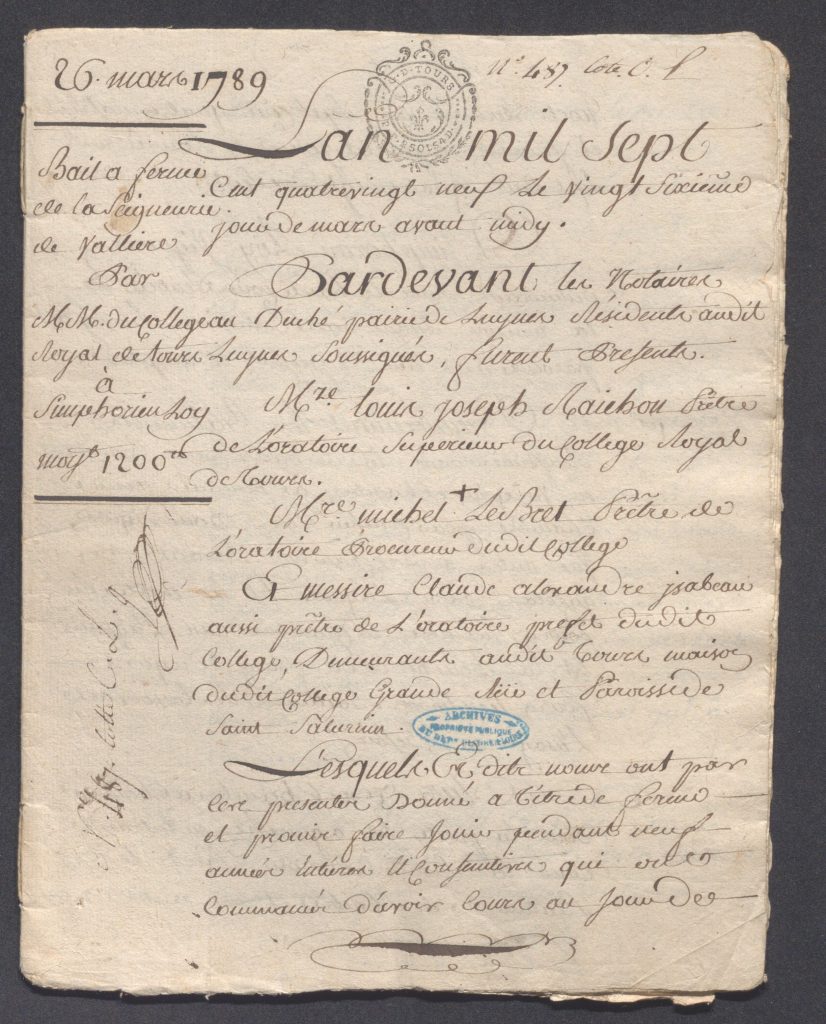 26. mars 1789
N.° 487. Cote C. f
G. D. TOURS
Bail a ferme
de la Seigneurie
de Valliere
Par
MM. du College
Royal de tours
à
Simphorien Loy
1200
Lan mil sept
Cent quatrevingt neuf Le vingt Sixieme
jour de mars avant midy.
Pardevant les Notaires
au Duché pairie de Luynes Résidents audit
Luynes Soussignés, furent Presents.
Mre. Louis joseph Raichou Prêtre
de L'oratoire Superieur du College Royal
de Tours.
Mre michel + LeBret Prêtre de
L'oratoire Procureur dudit College
Et messire Claude alexandre jsabeau
aussi prêtre de L'oratoire prefet dudit
College, Demeurants audit Tours maison
dudit College Grande Rüe et Paroisse de
Saint Saturnin.
ARCHIVES
PROPRIÉTÉ PUBLIQUE
DU DEPT D'INDRE & LOIRE
Lesquels Et dits noms ont par
ces presentes Donné a titre de ferme
et promis faire Jouir pendant neuf
années entieres & Consecutives qui ont
Commancé d'avoir Cours au Jour de
N.° 487. Lettre C. L. 9